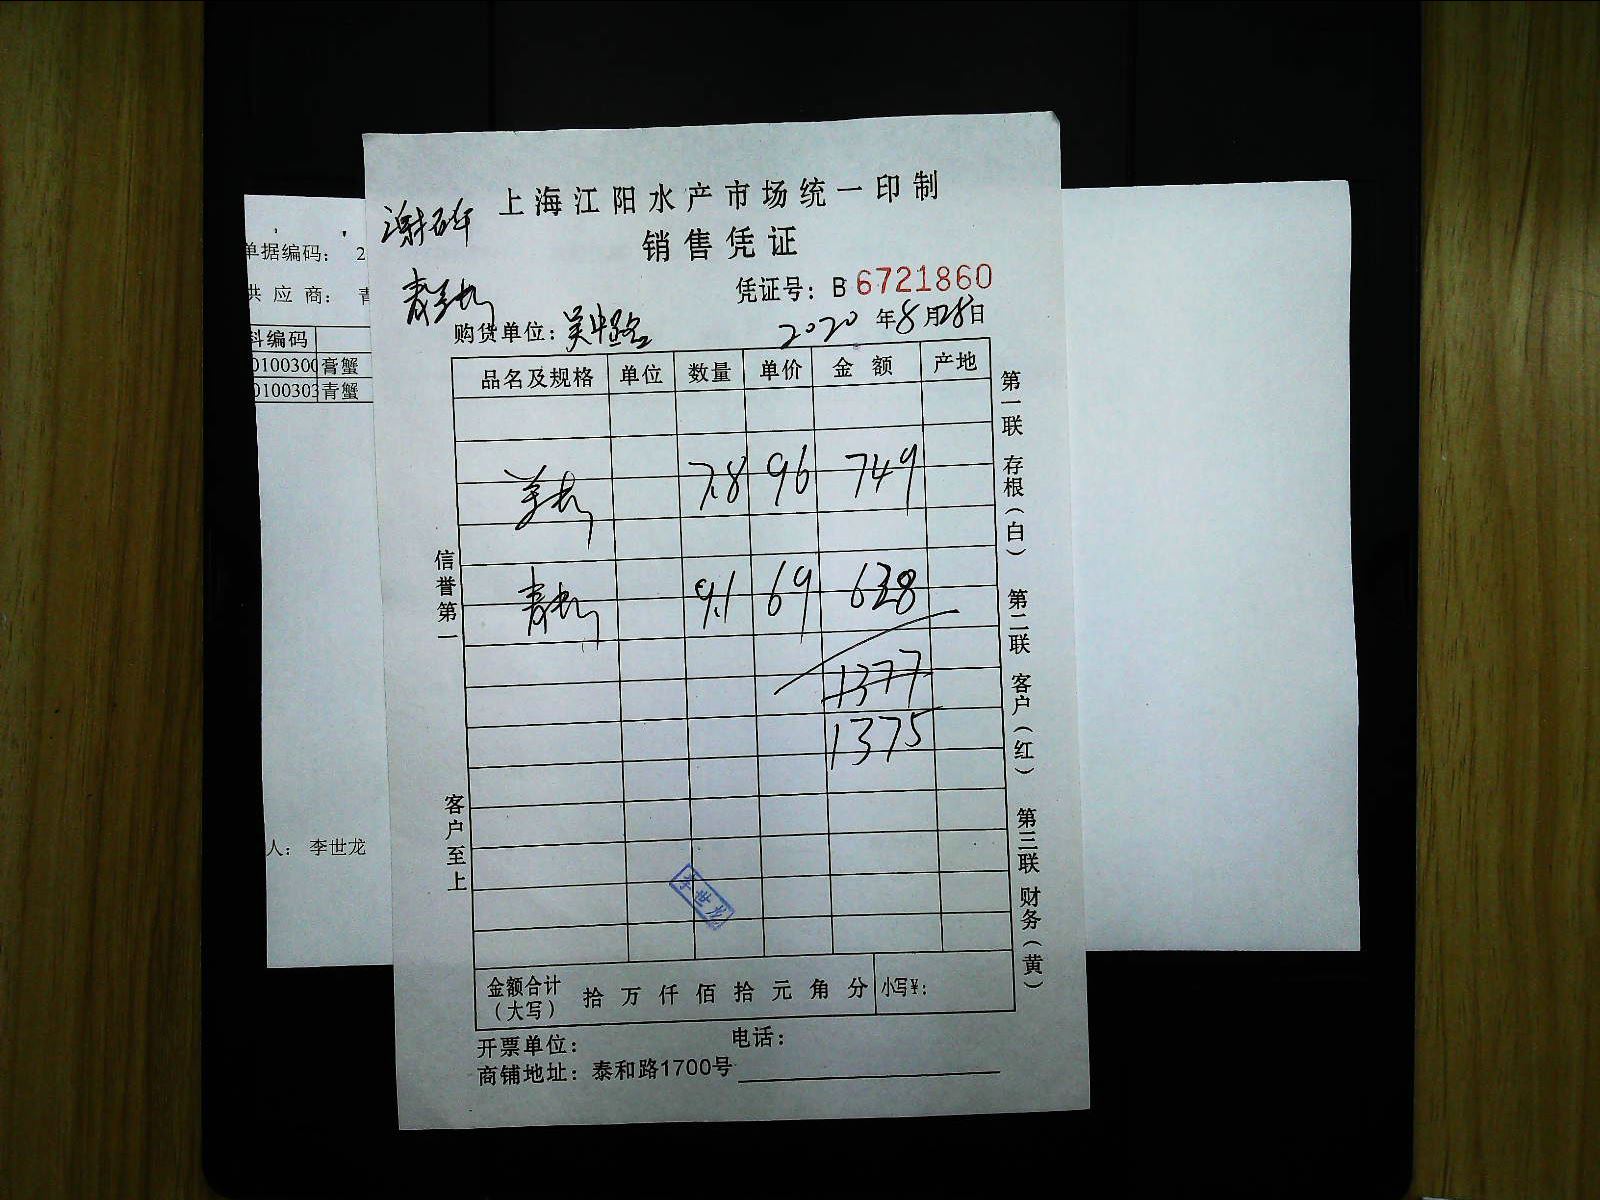 上海江阳水产市场统一印制
销售凭证
凭证号：B 6721860
购货单位：吴中路
2020年8月28日
品名及规格 单位 数量 单价 金额 产地
7.8 96 749
9.1 69 628
1377
1375
李世龙
金额合计（大写） 拾 万 仟 佰 拾 元 角 分 小写¥：
开票单位： 电话：
商铺地址：泰和路1700号
信誉第一
客户至上
第一联 存根（白） 第二联 客户（红） 第三联 财务（黄）
单据编码： 2
供应商： 青
料编码
0100300 膏蟹
0100303 青蟹
人： 李世龙